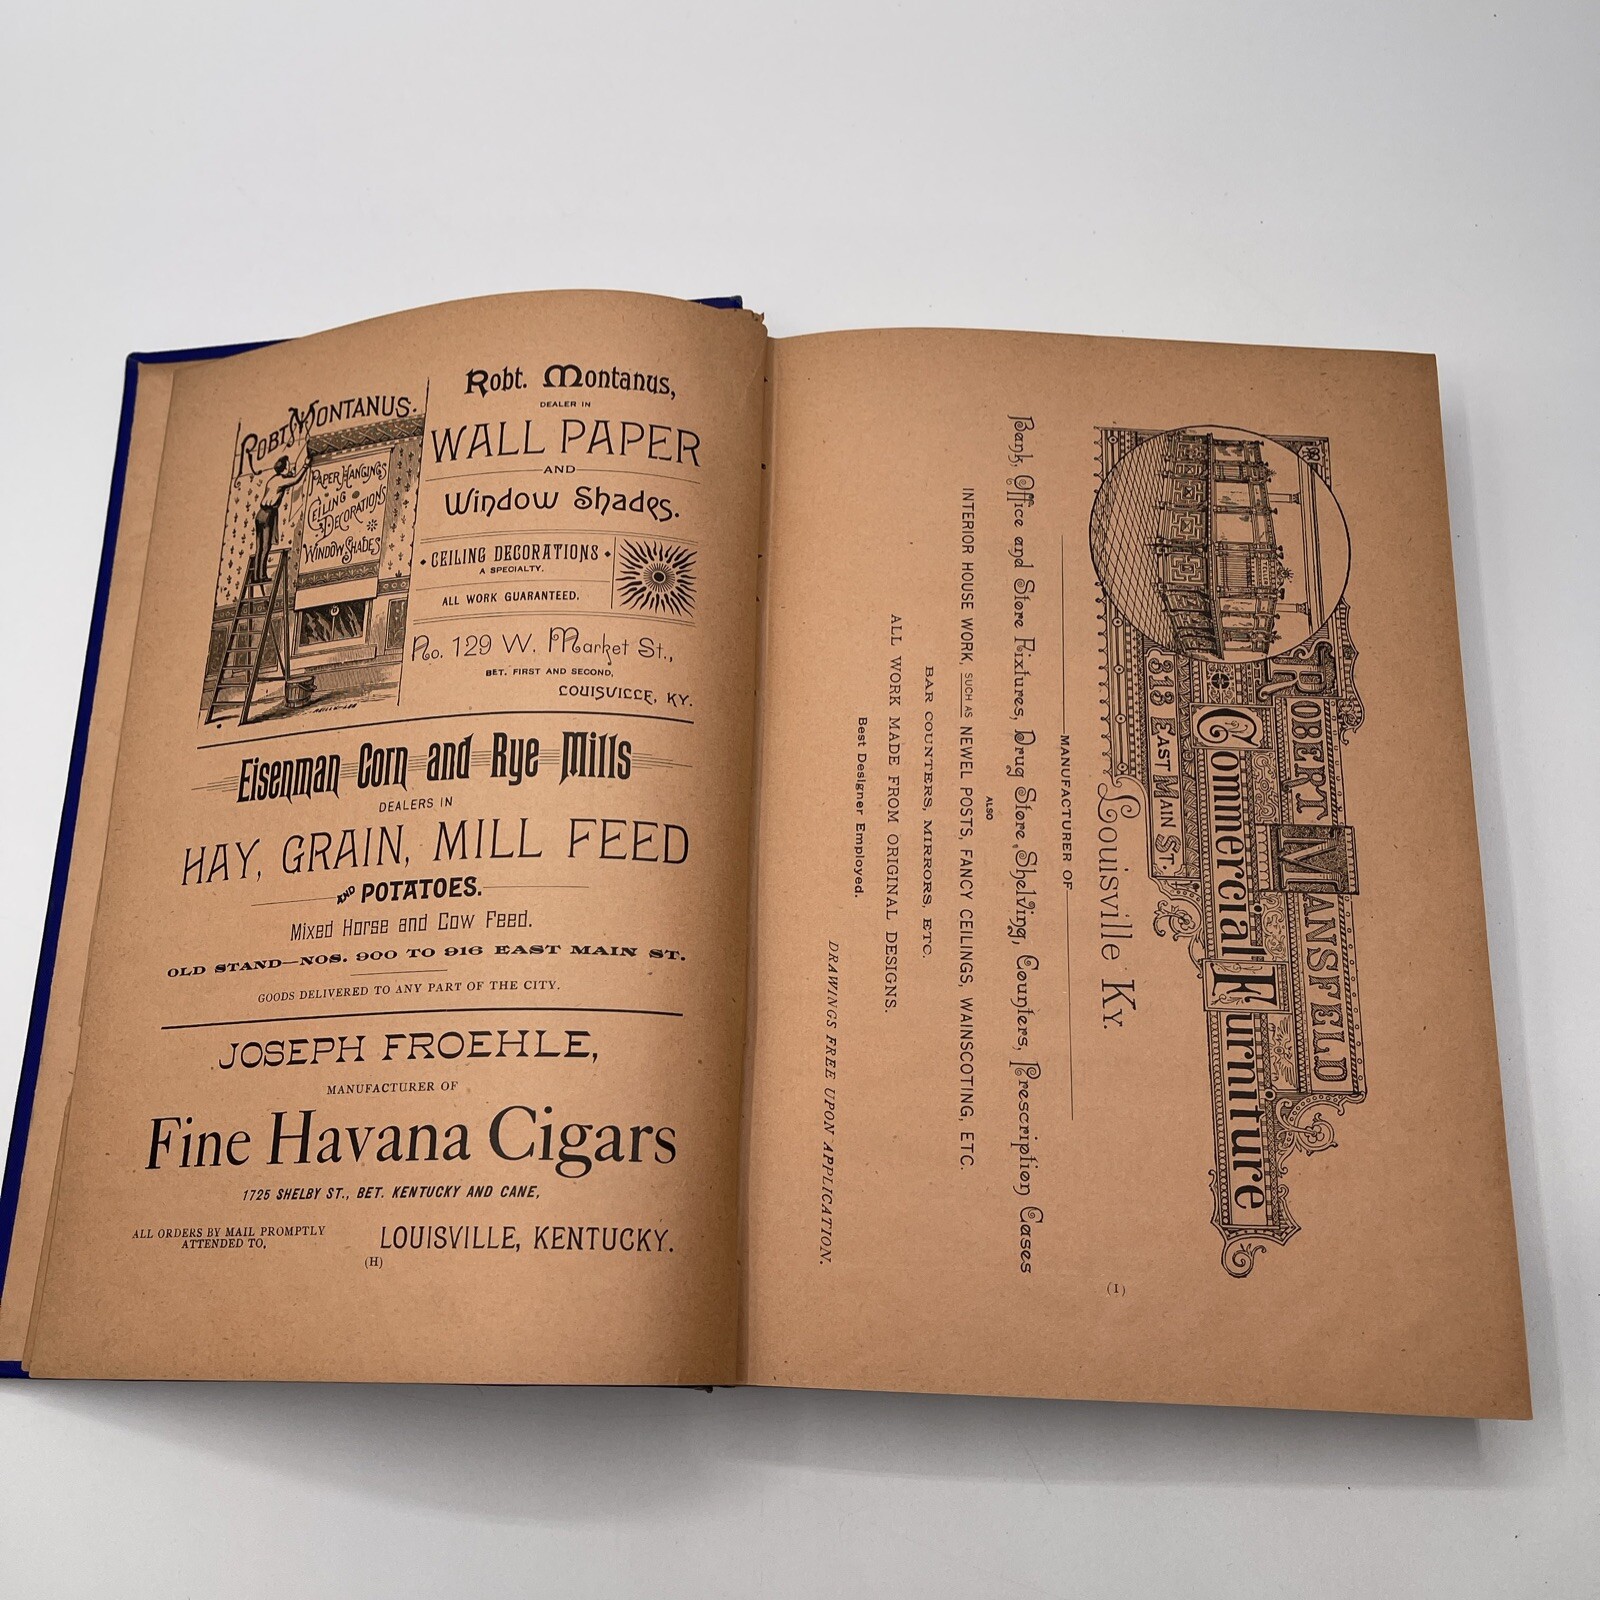 ROBT MONTANUS.
PAPER HANGINGS
CEILING
DECORATIONS
WINDOW SHADES
Robt. Montanus,
DEALER IN
WALL PAPER
AND
Window Shades.
CEILING DECORATIONS
A SPECIALTY.
ALL WORK GUARANTEED.
No. 129 W. Market St.,
BET. FIRST AND SECOND,
LOUISVILLE, KY.
Eisenman Corn and Rye Mills
DEALERS IN
HAY, GRAIN, MILL FEED
AND POTATOES.
Mixed Horse and Cow Feed.
OLD STAND—NOS. 900 TO 916 EAST MAIN ST.
GOODS DELIVERED TO ANY PART OF THE CITY.
JOSEPH FROEHLE,
MANUFACTURER OF
Fine Havana Cigars
1725 SHELBY ST., BET. KENTUCKY AND CANE,
ALL ORDERS BY MAIL PROMPTLY
ATTENDED TO,
LOUISVILLE, KENTUCKY.
(H)
ROBERT MANSFIELD
Commercial Furniture
813 EAST MAIN ST.
Louisville Ky.
MANUFACTURER OF
Bank, Office and Store Fixtures, Drug Store Shelving, Counters, Prescription Cases
ALSO
INTERIOR HOUSE WORK, SUCH AS NEWEL POSTS, FANCY CEILINGS, WAINSCOTING, ETC.
BAR COUNTERS, MIRRORS, ETC.
ALL WORK MADE FROM ORIGINAL DESIGNS.
Best Designer Employed.
DRAWINGS FREE UPON APPLICATION.
(I)